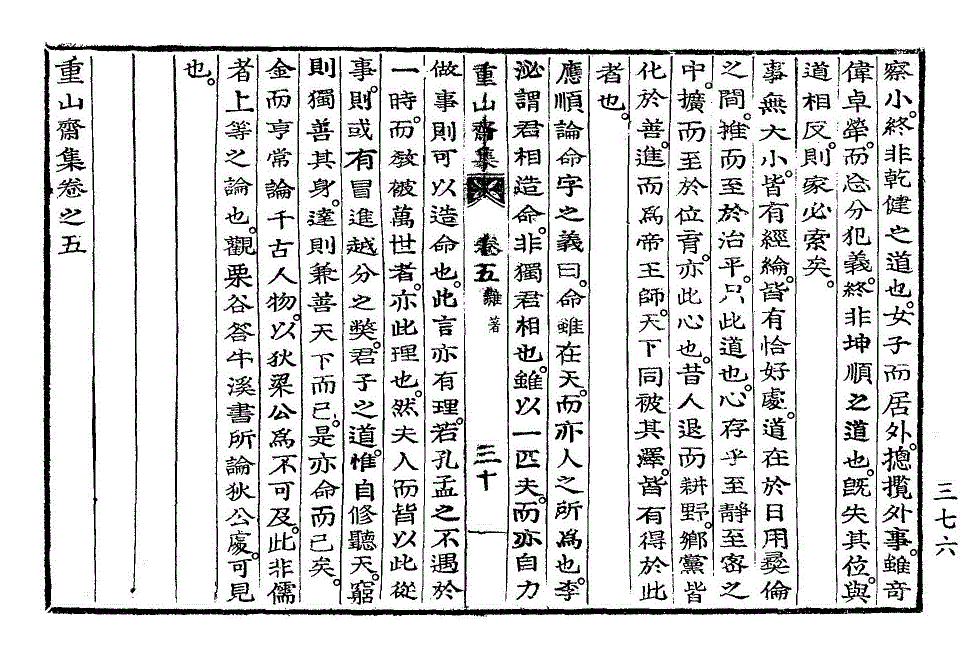 察小。終非乾健之道也。女子而居外。摠攬外事。雖奇
偉卓犖。而忿分犯義。終非坤順之道也。旣失其位。與
道相反。則家必索矣。
事無大小。皆有經綸。皆有恰好處。道在於日用彛倫
之間。推而至於治平。只此道也。心存乎至靜至密之
中。擴而至於位育。亦此心也。昔人退而耕野。鄕黨皆
化於善。進而爲帝王師。天下同被其澤。皆有得於此
者也。
應順論命字之義曰。命雖在天。而亦人之所爲也。李
泌謂君相造命。非獨君相也。雖以一匹夫。而亦自力
重山齋集 卷五 雜著 三十
做事則可以造命也。此言亦有理。若孔孟之不遇於
一時。而敎被萬世者。亦此理也。然夫人而皆以此從
事。則或有冒進越分之獘。君子之道。惟自修聽天。窮
則獨善其身。達則兼善天下而已。是亦命而已矣。
金而亨常論千古人物。以狄梁公爲不可及。此非儒
者上等之論也。觀栗谷答牛溪書所論狄公處。可見
也。
重山齋集卷之五
三七六